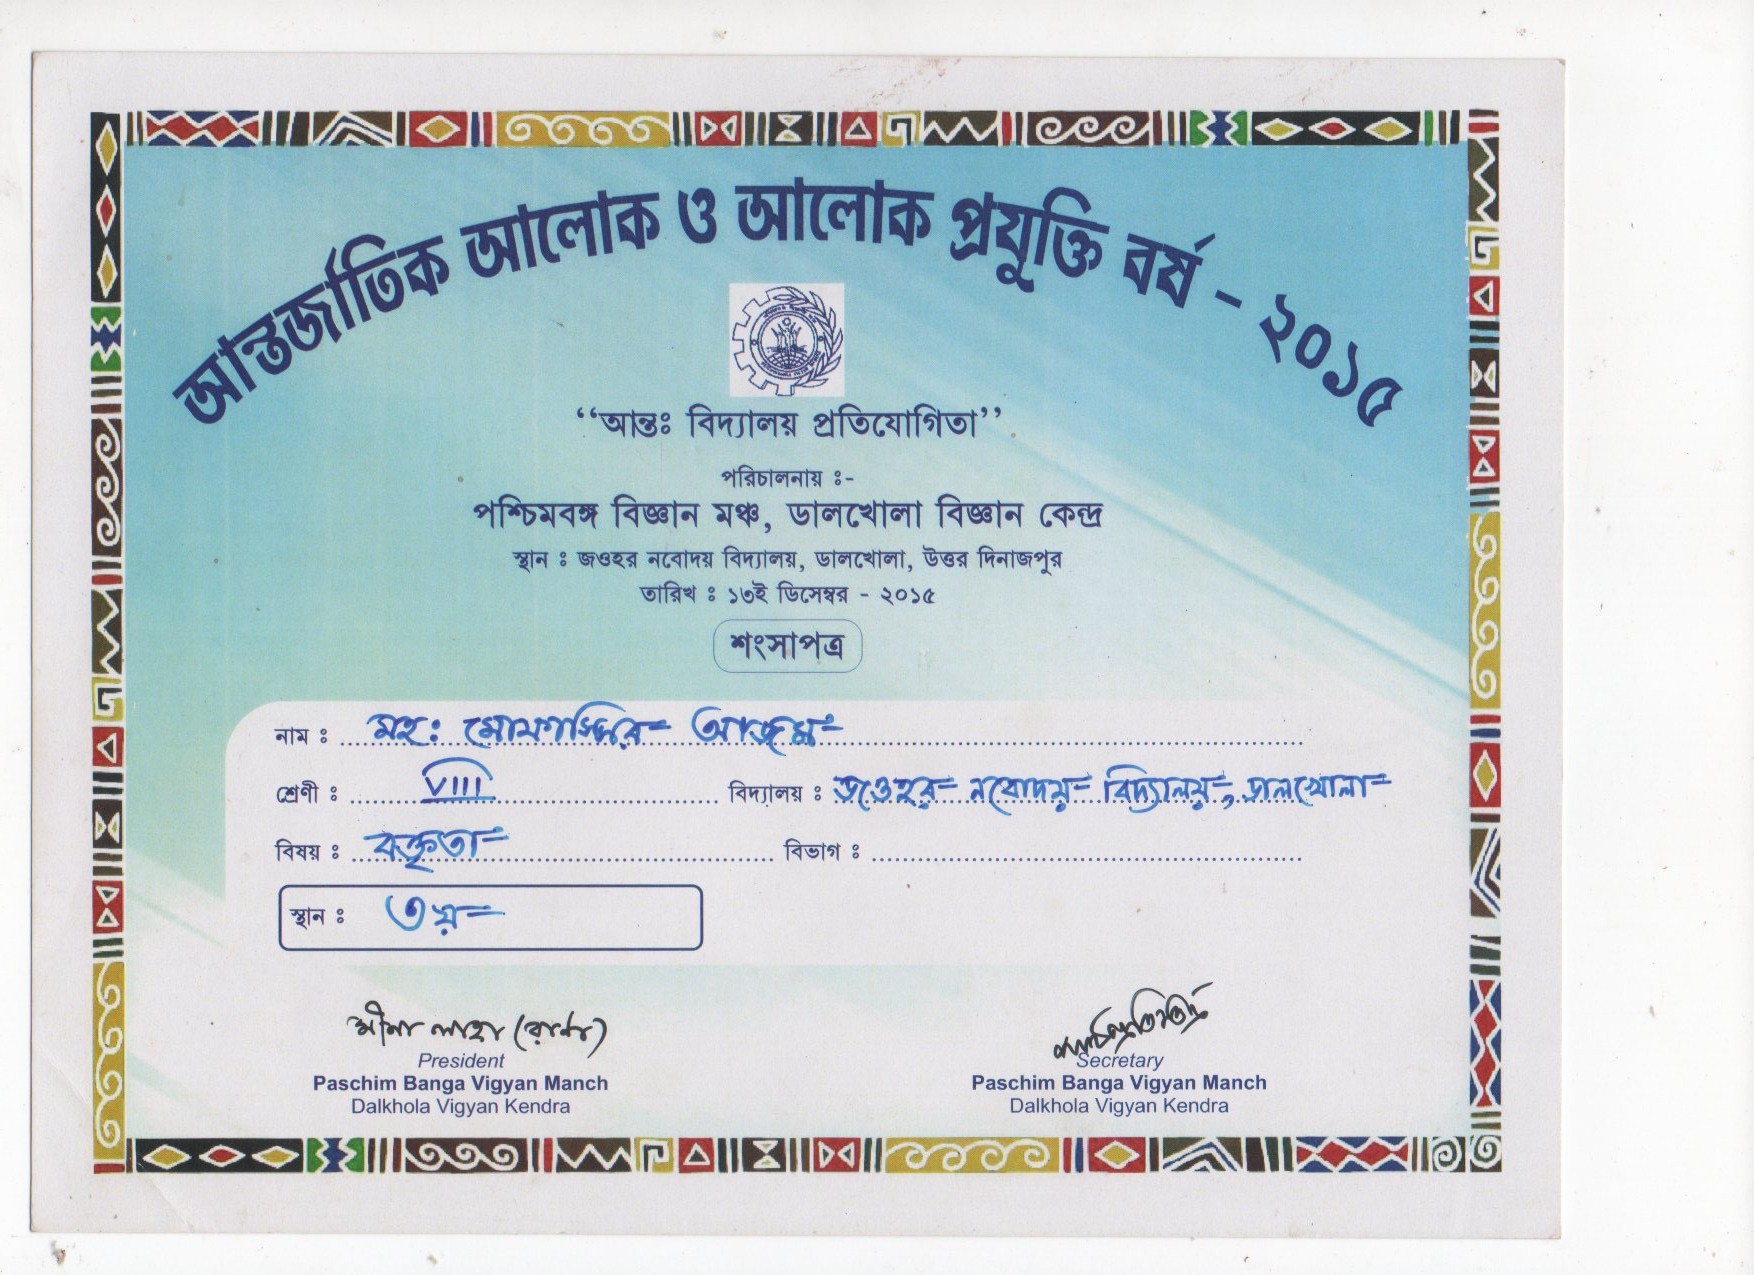 আন্তর্জাতিক আলোক ও আলোক প্রযুক্তি বর্ষ - ২০১৫
“আন্তঃ বিদ্যালয় প্রতিযোগিতা”
পরিচালনায় ঃ-
পশ্চিমবঙ্গ বিজ্ঞান মঞ্চ, ডালখোলা বিজ্ঞান কেন্দ্র
স্থান ঃ জওহর নবোদয় বিদ্যালয়, ডালখোলা, উত্তর দিনাজপুর
তারিখ ঃ ১৩ই ডিসেম্বর - ২০১৫
শংসাপত্র
নাম ঃ মহ: আজম
শ্রেণী ঃ VIII বিদ্যালয় ঃ জওহর নবোদয় বিদ্যালয়, ডালখোলা
বিষয় ঃ বক্তৃতা বিভাগ ঃ
স্থান ঃ ৩য়
মীনা সাহা
President Secretary
Paschim Banga Vigyan Manch Paschim Banga Vigyan Manch
Dalkhola Vigyan Kendra Dalkhola Vigyan Kendra